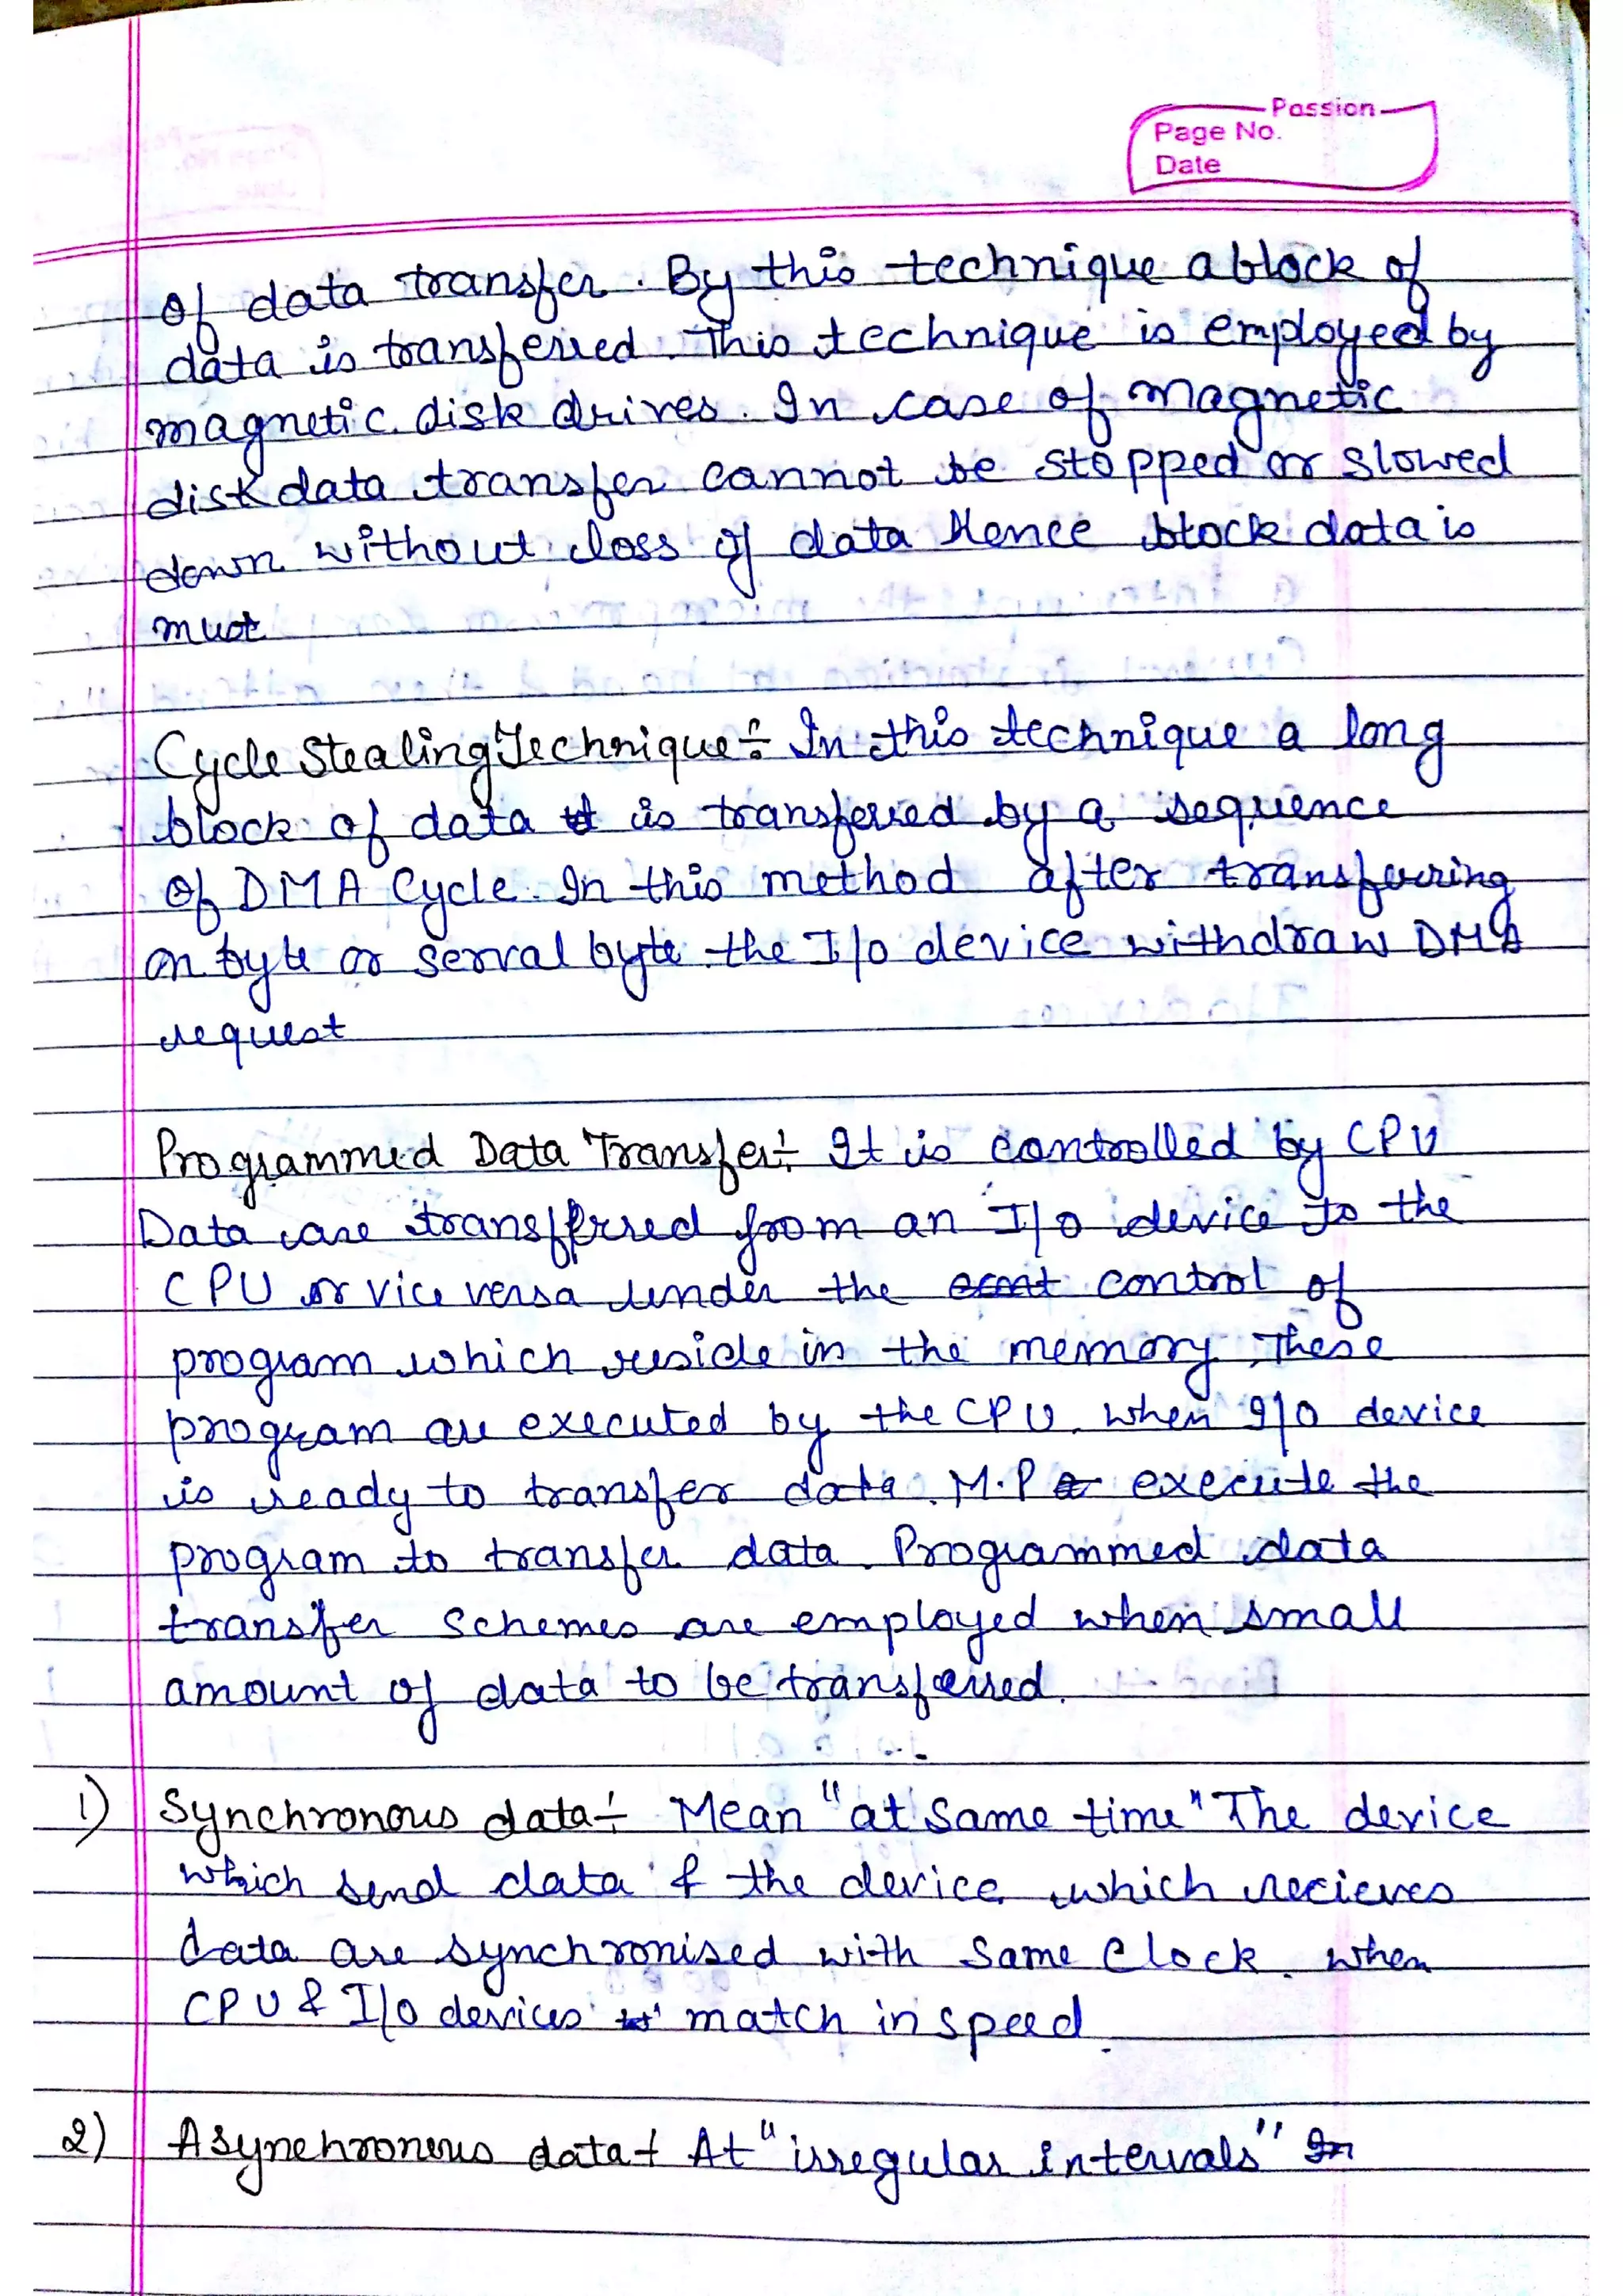 Passion
Page No.
Date
of data transfer. By this technique a block of
data is transferred. This technique is employed by
magnetic disk drives. In case of magnetic
disk data transfer cannot be stopped or slowed
down without loss of data Hence block data is
must
Cycle Stealing Technique÷ In this technique a long
block of data is transfered by a sequence
of DMA Cycle. In this method after transferring
on byte or serval byte the I/o device withdraw DMA
request
Programmed Data Transfer÷ It is controlled by CPU
Data are transfferred from an I/o device to the
CPU or vice versa under the control of
program which reside in the memory. These
program are executed by the CPU. when I/o device
is ready to transfer data. M.P execute the
program to transfer data. Programmed data
transfer schemes are employed when small
amount of data to be transferred.
1) Synchronous data÷ Mean "at Same time" The device
which send data & the device which recieves
data are synchronised with same Clock. when
CPU & I/o devices match in speed.
2) Asynchronous data÷ At "irregular intervals" In